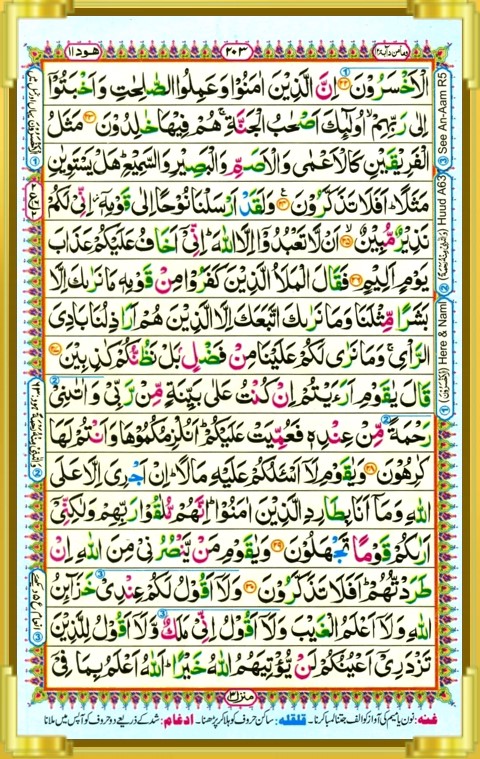 وما من دابة ١٢
٢٠٣
هود ١١
الْاَخْسَرُوْنَ ﴿۲۲﴾ اِنَّ الَّذِیْنَ اٰمَنُوْا وَعَمِلُوا الصّٰلِحٰتِ وَاَخْبَتُوْۤا
اِلٰی رَبِّهِمْ ۙ اُولٰٓئِكَ اَصْحٰبُ الْجَنَّةِ ۚ هُمْ فِیْهَا خٰلِدُوْنَ ﴿۲۳﴾ مَثَلُ
الْفَرِیْقَیْنِ كَالْاَعْمٰی وَالْاَصَمِّ وَالْبَصِیْرِ وَالسَّمِیْعِ ؕ هَلْ یَسْتَوِیٰنِ
مَثَلًا ؕ اَفَلَا تَذَكَّرُوْنَ ﴿۲۴﴾ وَلَقَدْ اَرْسَلْنَا نُوْحًا اِلٰی قَوْمِهٖۤ ؗ اِنِّیْ لَكُمْ
نَذِیْرٌ مُّبِیْنٌ ﴿۲۵﴾ اَنْ لَّا تَعْبُدُوْۤا اِلَّا اللّٰهَ ؕ اِنِّیْۤ اَخَافُ عَلَیْكُمْ عَذَابَ
یَوْمٍ اَلِیْمٍ ﴿۲۶﴾ فَقَالَ الْمَلَاُ الَّذِیْنَ كَفَرُوْا مِنْ قَوْمِهٖ مَا نَرٰىكَ اِلَّا
بَشَرًا مِّثْلَنَا وَمَا نَرٰىكَ اتَّبَعَكَ اِلَّا الَّذِیْنَ هُمْ اَرَاذِلُنَا بَادِیَ
الرَّاْیِ ۚ وَمَا نَرٰی لَكُمْ عَلَیْنَا مِنْ فَضْلٍۭ بَلْ نَظُنُّكُمْ كٰذِبِیْنَ ﴿۲۷﴾
قَالَ یٰقَوْمِ اَرَءَیْتُمْ اِنْ كُنْتُ عَلٰی بَیِّنَةٍ مِّنْ رَّبِّیْ وَاٰتٰىنِیْ
رَحْمَةً مِّنْ عِنْدِهٖ فَعُمِّیَتْ عَلَیْكُمْ ؕ اَنُلْزِمُكُمُوْهَا وَاَنْتُمْ لَهَا
كٰرِهُوْنَ ﴿۲۸﴾ وَیٰقَوْمِ لَاۤ اَسْـَٔلُكُمْ عَلَیْهِ مَالًا ؕ اِنْ اَجْرِیَ اِلَّا عَلَی
اللّٰهِ وَمَاۤ اَنَا بِطَارِدِ الَّذِیْنَ اٰمَنُوْا ؕ اِنَّهُمْ مُّلٰقُوْا رَبِّهِمْ وَلٰكِنِّیْۤ
اَرٰىكُمْ قَوْمًا تَجْهَلُوْنَ ﴿۲۹﴾ وَیٰقَوْمِ مَنْ یَّنْصُرُنِیْ مِنَ اللّٰهِ اِنْ
طَرَدْتُّهُمْ ؕ اَفَلَا تَذَكَّرُوْنَ ﴿۳۰﴾ وَلَاۤ اَقُوْلُ لَكُمْ عِنْدِیْ خَزَآىِٕنُ
اللّٰهِ وَلَاۤ اَعْلَمُ الْغَیْبَ وَلَاۤ اَقُوْلُ اِنِّیْ مَلَكٌ وَّلَاۤ اَقُوْلُ لِلَّذِیْنَ
تَزْدَرِیْۤ اَعْیُنُكُمْ لَنْ یُّؤْتِیَهُمُ اللّٰهُ خَیْرًا ؕ اَللّٰهُ اَعْلَمُ بِمَا فِیْۤ
منزل ٣
غنه: نون یا میم کی آواز کو الف جتنا لمبا کرنا۔ قلقله: ساکن حروف کو ہلا کر پڑھنا۔ ادغام: شد کے ذریعے دو حروف کو آپس میں ملانا
③ See An-Aam R5
② Huud A63
① Here & Naml